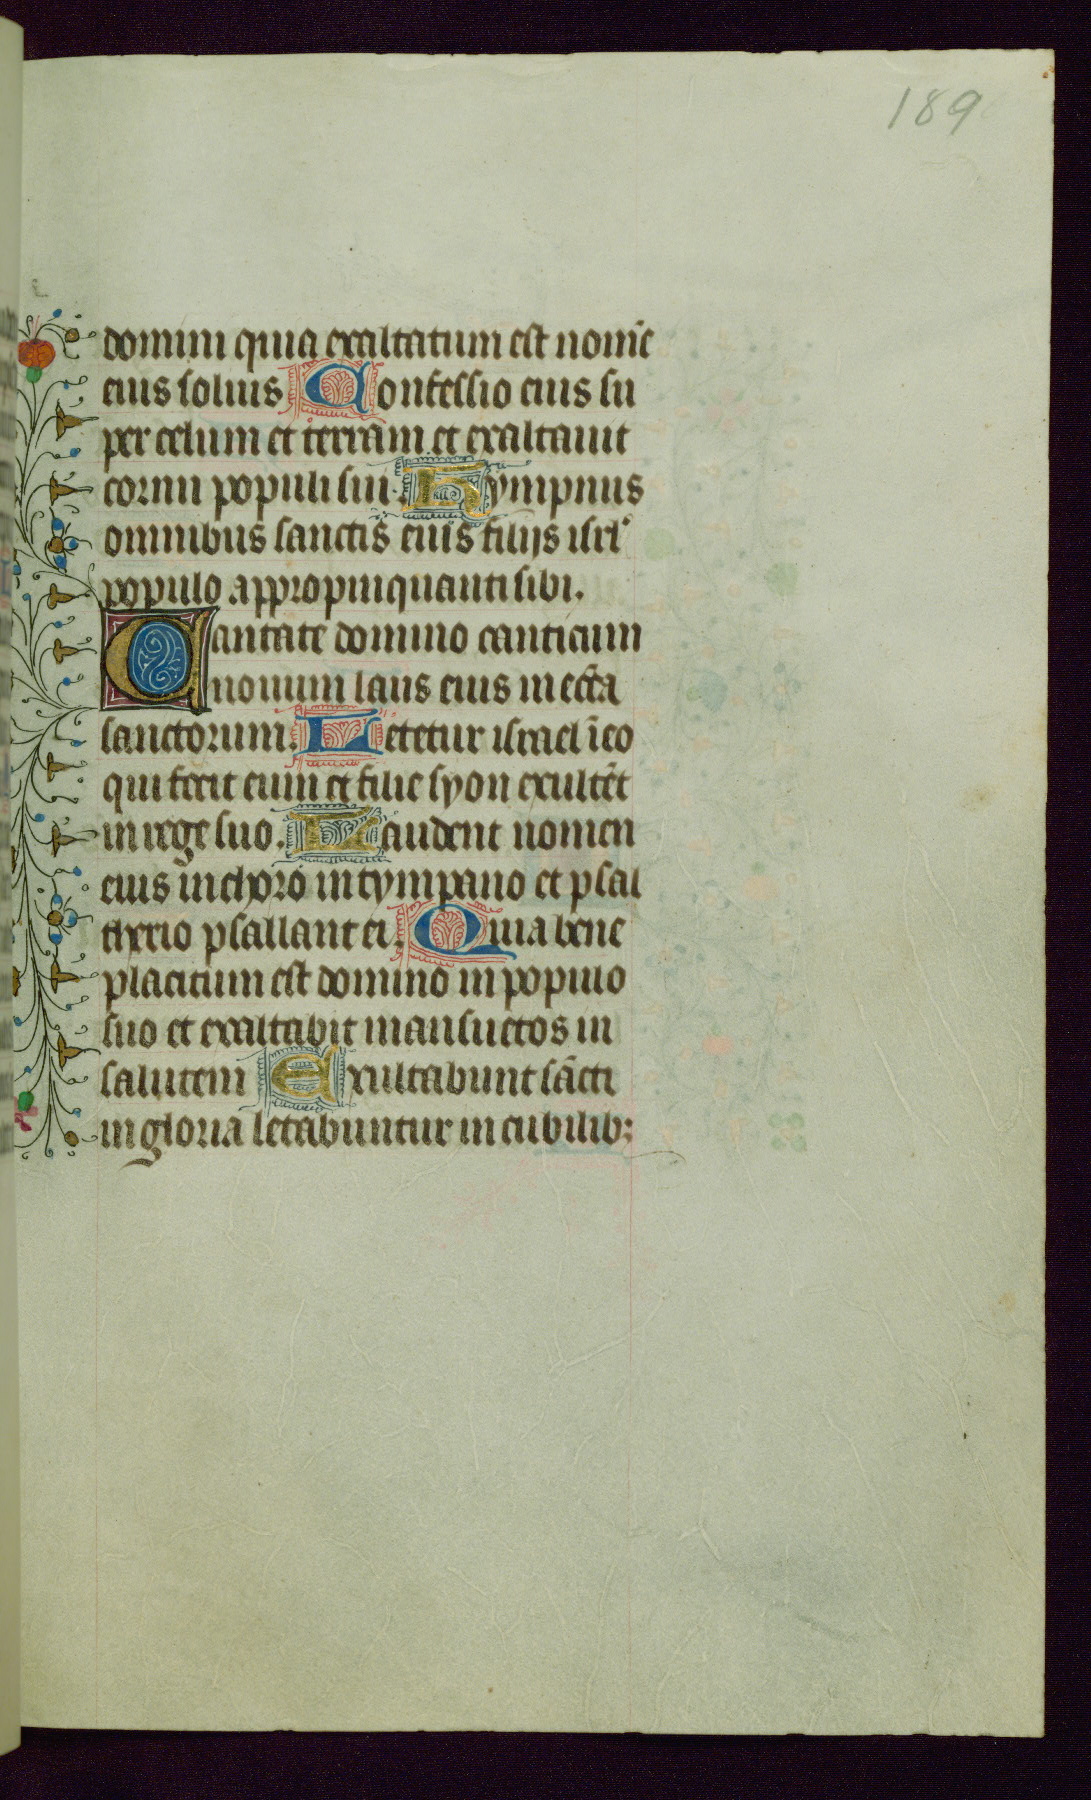 189
domini quia exaltatum est nom̄e
eius solius Confessio eius su
per celum et terram et exaltauit
cornu populi sui. Hympnus
omnibus sanctis eius filijs isrl'
populo appropinquanti sibi.
Cantate domino canticum
nouum laus eius in ecc̄a
sanctorum. Letetur israel ī eo
qui fecit eum et filie syon exultēt
in rege suo. Laudent nomen
eius in choro in tympano et psal
terio psallant ei. Quia bene
placitum est domino in populo
suo et exaltabit mansuetos in
salutem Exultabunt sācti
in gloria letabuntur in cubilib;